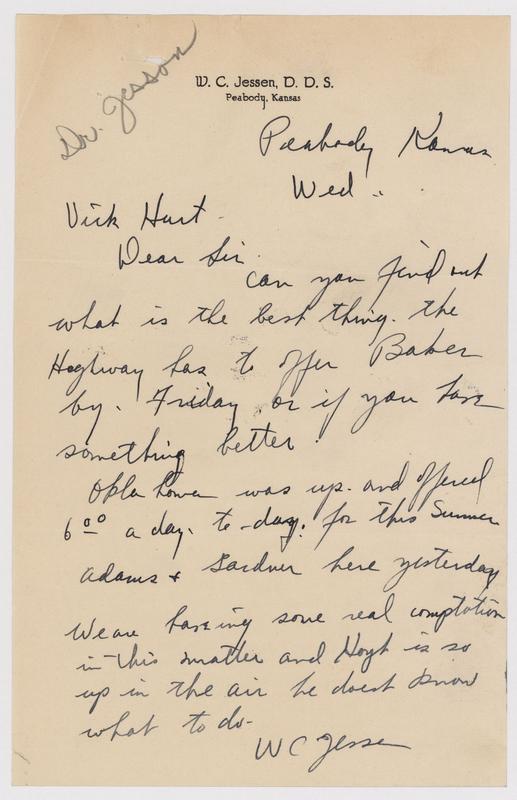 Dr. Jesson
W. C. Jessen, D. D. S.
Peabody, Kansas
Peabody Kansas
Wed..
Vick Hurt.
Dear Sir.
can you find out
what is the best thing. the
Highway has to offer Baker
by. Friday. or if you have
something better.
Okla Power was up. and offered
6 00 a day. to-day. for this Summer
Adams + Gardner here yesterday
We are having some real comptation
in this matter and Hoyt is so
up in the air he doest know
what to do-
W C Jessen